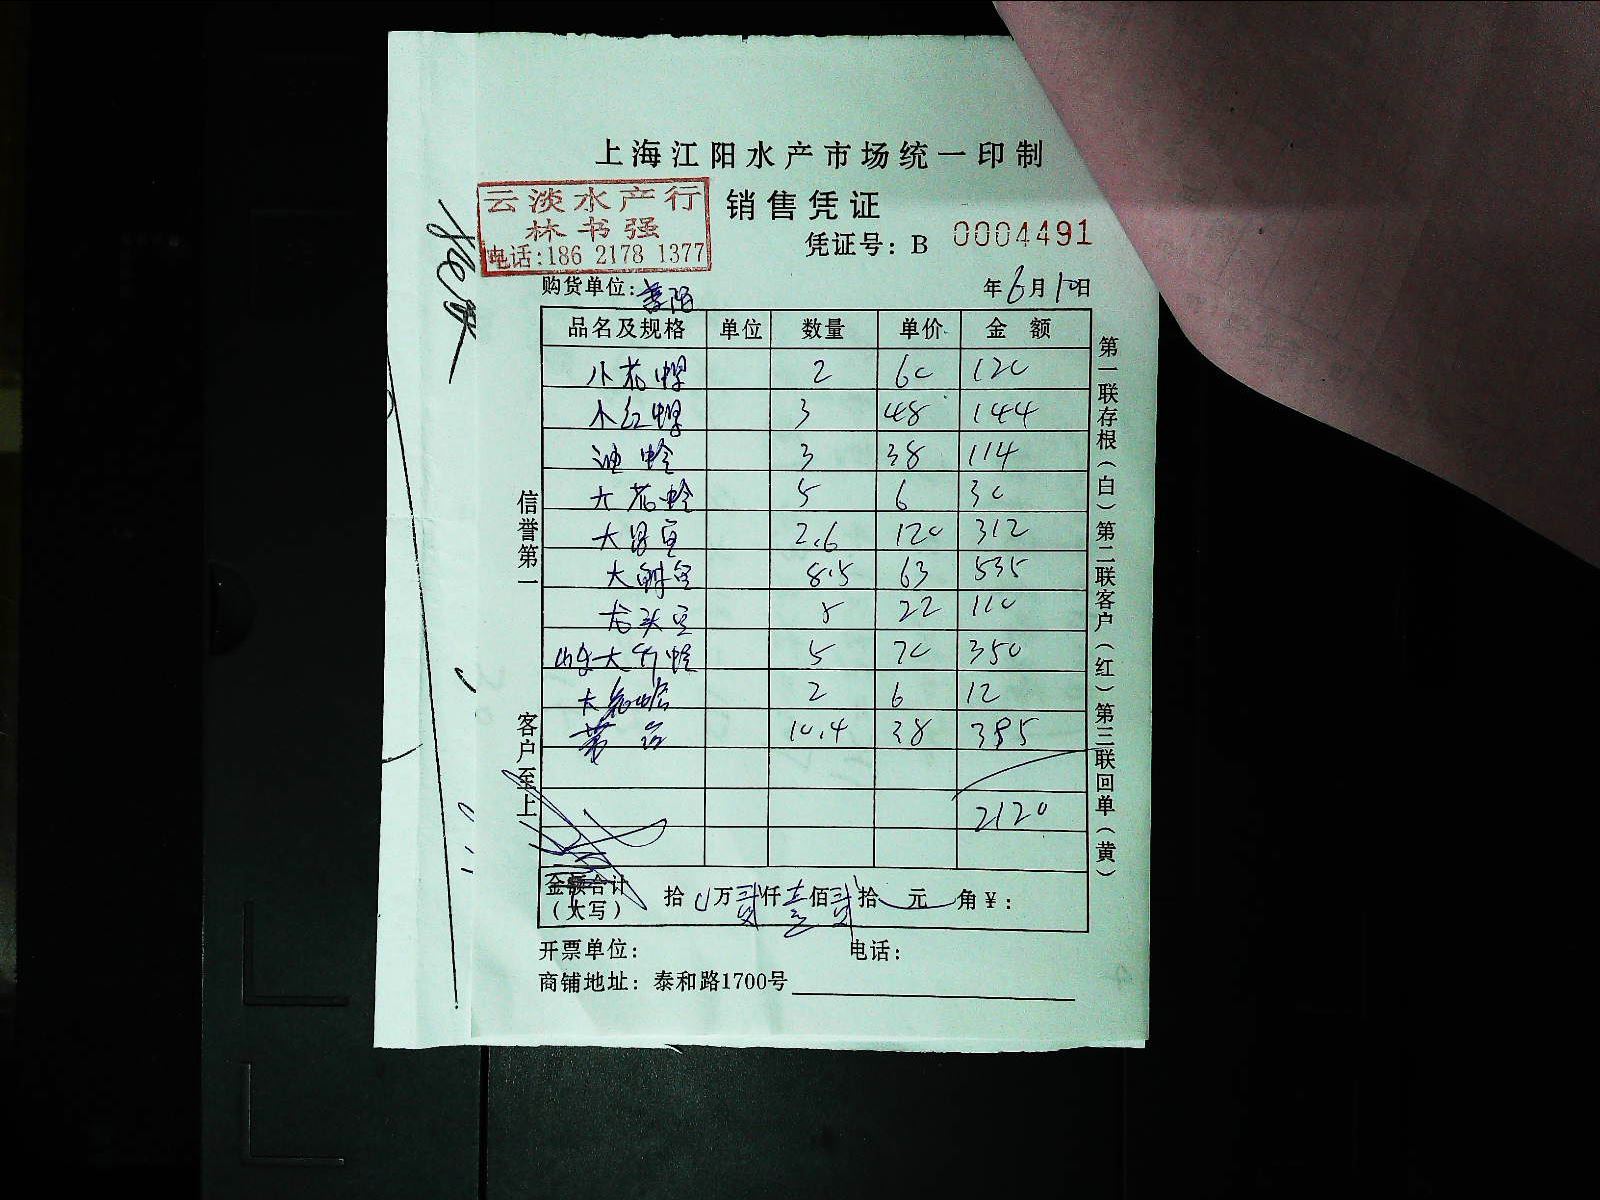 上海江阳水产市场统一印制
云淡水产行
林书强
电话:186 2178 1377
销售凭证
凭证号：B 0004491
购货单位：
年6月10日
品名及规格 单位 数量 单价 金额
小花 2 60 120
小红 3 48 144
油蛤 3 38 114
大花蛤 5 6 30
大 2.6 120 312
大 8.5 63 535
龙头 5 22 110
山东大竹蛏 5 70 350
大花蛤 2 6 12
10.4 38 395
2120
金额合计（大写） 拾 0万贰仟壹佰贰拾 元 角￥：
开票单位： 电话：
商铺地址：泰和路1700号
信誉第一 客户至上
第一联存根（白）第二联客户（红）第三联回单（黄）